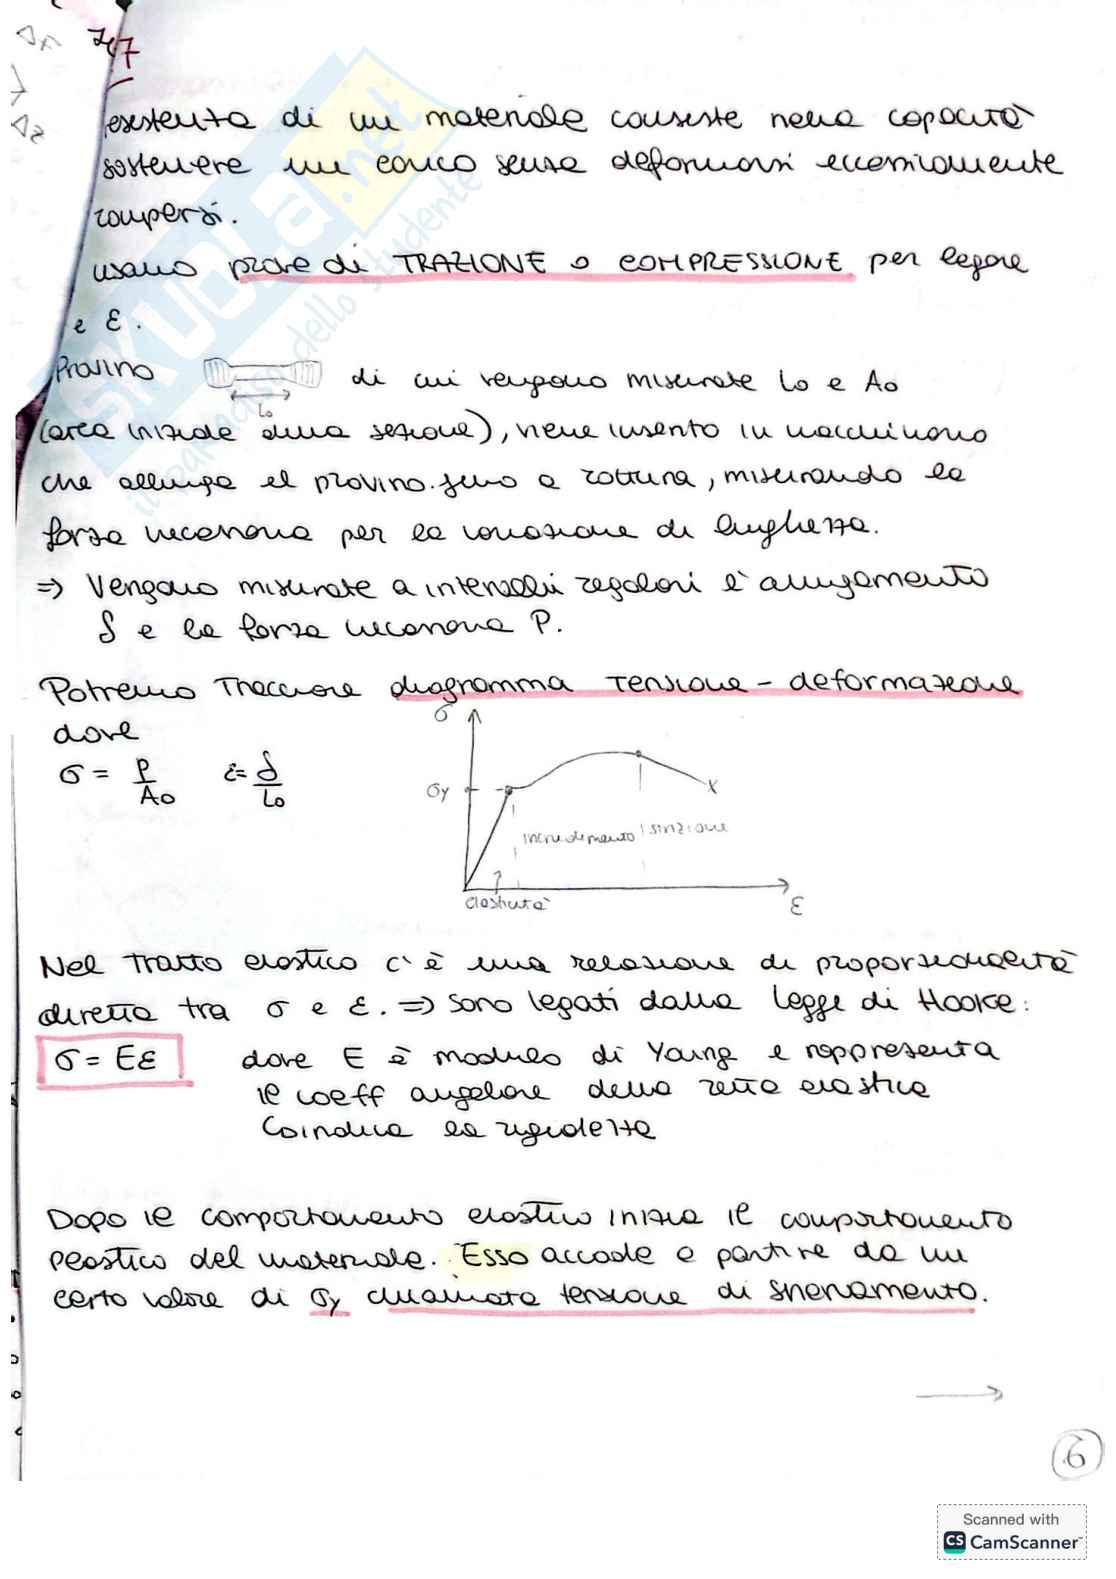 7.7
resistenza di un materiale consiste nella capacità
sostenere un carico senza deformarsi eccessivamente
rompersi.
usano prove di TRAZIONE o COMPRESSIONE per legare
e ε.
Provino di cui vengono misurate L0 e A0
L0
(area iniziale della sezione), viene inserito in macchinario
che allunga il provino fino a rottura, misurando la
forza necessaria per la variazione di lunghezza.
=> Vengono misurate a intervalli regolari l'allungamento
δ e la forza necessaria P.
Potremo Tracciare diagramma Tensione - deformazione
dove
σ = P/A0 ε = δ/L0
σ
σy
incrudimento strizione
elasticità
ε
Nel Tratto elastico c'è una relazione di proporzionalità
diretta tra σ e ε. => sono legati dalla legge di Hooke:
σ = Eε dove E è modulo di Young e rappresenta
il coeff angolare della retta elastica
la rigidezza
Dopo il comportamento elastico inizia il comportamento
plastico del materiale. Esso accade a partire da un
certo valore di σy chiamata tensione di snervamento.
6
Scanned with
CS CamScanner
SKUOLA.net
il paradiso dello studente